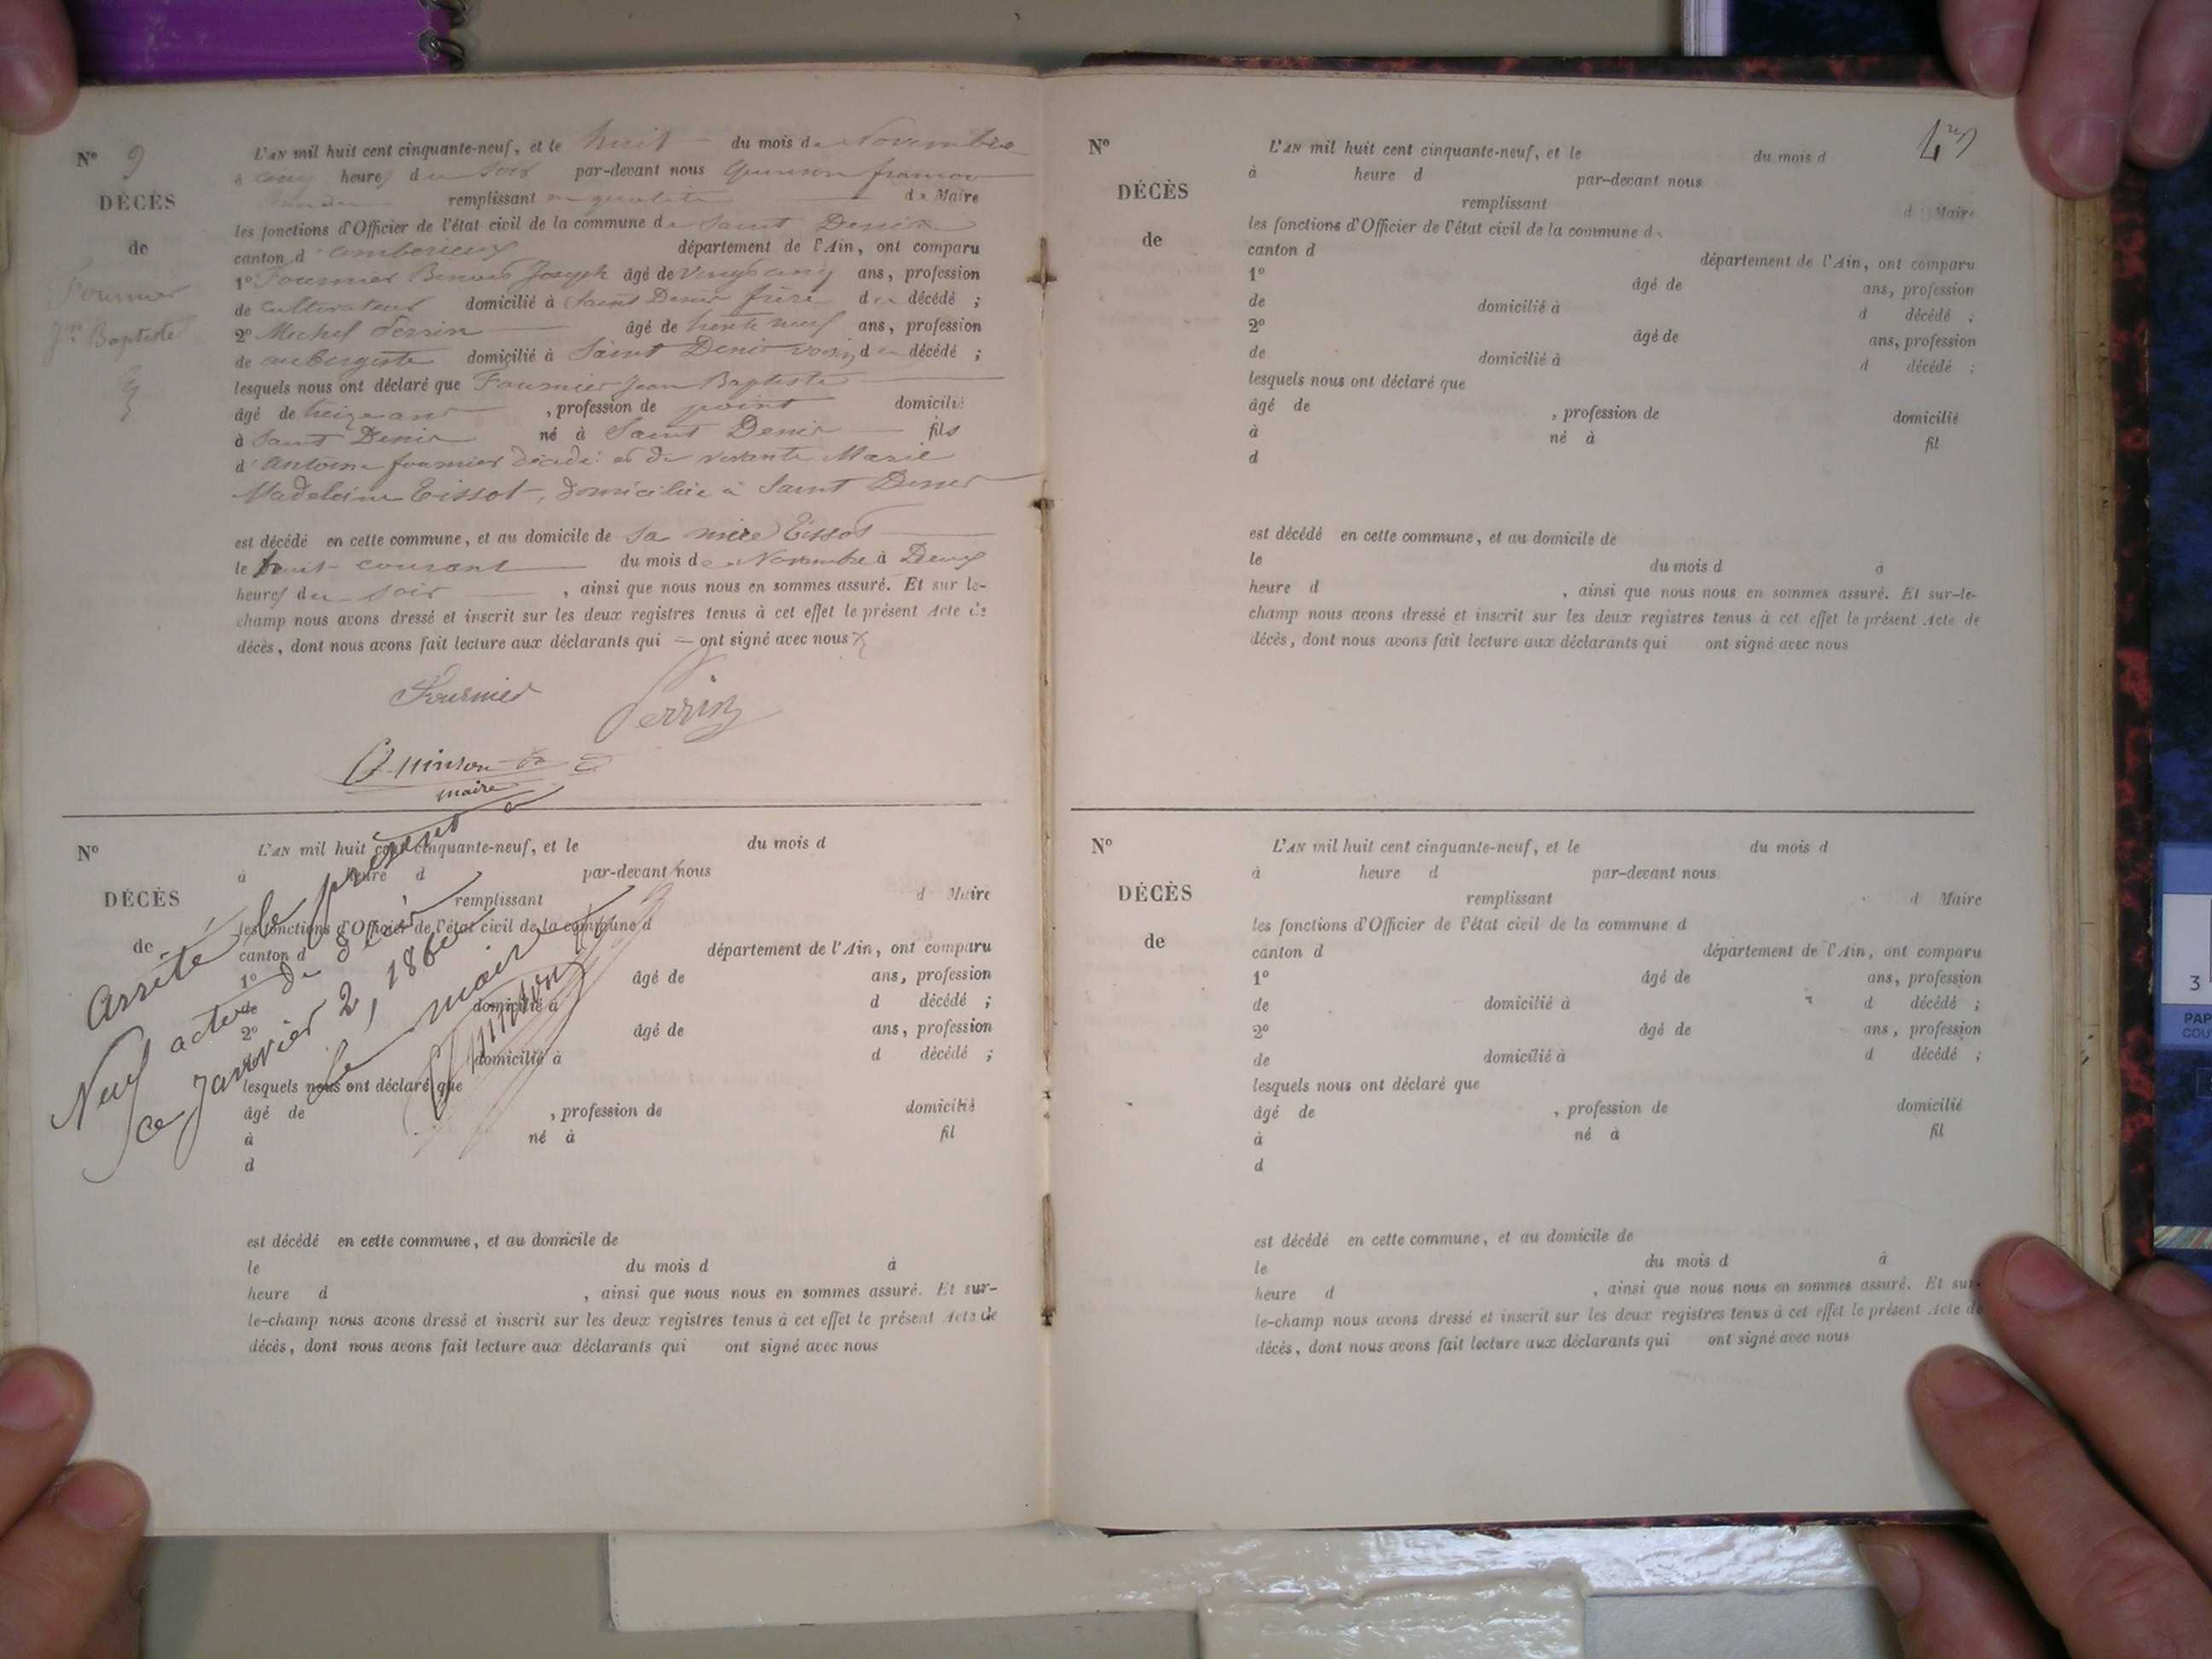 N° 9
DÉCÈS
de
Fournier
Jn Baptiste
L'AN mil huit cent cinquante-neuf, et le huit du mois de Novembre
à cinq heures du soir par-devant nous Quinson
remplissant en qualité de Maire
les fonctions d'Officier de l'état civil de la commune de Saint Denis
canton d'ambérieux département de l'Ain, ont comparu
1° Fournier Benoit Joseph âgé de vingt cinq ans, profession
de cultivateur domicilié à Saint Denis frère du décédé ;
2° Michel Perrin âgé de trente neuf ans, profession
de aubergiste domicilié à Saint Denis voisin du décédé ;
lesquels nous ont déclaré que Fournier Jean Baptiste
âgé de treize ans , profession de point domicilié
à Saint Denis né à Saint Denis fils
d'Antoine fournier décédé et de vivante Marie
Madeleine Tissot, domiciliée à Saint Denis
est décédé en cette commune, et au domicile de sa mère Tissot
le huit courant du mois de Novembre à Deux
heures du soir , ainsi que nous nous en sommes assuré. Et sur le-
champ nous avons dressé et inscrit sur les deux registres tenus à cet effet le présent Acte de
décès, dont nous avons fait lecture aux déclarants qui ont signé avec nous
Fournier
Perrin
Quinson
maire
N°
DÉCÈS
de
L'AN mil huit cent cinquante-neuf, et le du mois d
à heure d par-devant nous
remplissant d Maire
les fonctions d'Officier de l'état civil de la commune d
canton d département de l'Ain, ont comparu
1° âgé de ans, profession
de domicilié à d décédé ;
2° âgé de ans, profession
de domicilié à d décédé ;
lesquels nous ont déclaré que
âgé de , profession de domicilié
à né à fil
d
est décédé en cette commune, et au domicile de
le du mois d à
heure d , ainsi que nous nous en sommes assuré. Et sur-
le-champ nous avons dressé et inscrit sur les deux registres tenus à cet effet le présent Acte de
décès, dont nous avons fait lecture aux déclarants qui ont signé avec nous
Arrêté le présent à
Neuf actes de décès
ce Janvier 2, 1860
Le maire
Quinson
N°
DÉCÈS
de
L'AN mil huit cent cinquante-neuf, et le du mois d
à heure d par-devant nous
remplissant d Maire
les fonctions d'Officier de l'état civil de la commune d
canton d département de l'Ain, ont comparu
1° âgé de ans, profession
de domicilié à d décédé ;
2° âgé de ans, profession
de domicilié à d décédé ;
lesquels nous ont déclaré que
âgé de , profession de domicilié
à né à fil
d
est décédé en cette commune, et au domicile de
le du mois d à
heure d , ainsi que nous nous en sommes assuré. Et sur-le-
champ nous avons dressé et inscrit sur les deux registres tenus à cet effet le présent Acte de
décès, dont nous avons fait lecture aux déclarants qui ont signé avec nous
N°
DÉCÈS
de
L'AN mil huit cent cinquante-neuf, et le du mois d
à heure d par-devant nous
remplissant d Maire
les fonctions d'Officier de l'état civil de la commune d
canton d département de l'Ain, ont comparu
1° âgé de ans, profession
de domicilié à d décédé ;
2° âgé de ans, profession
de domicilié à d décédé ;
lesquels nous ont déclaré que
âgé de , profession de domicilié
à né à fil
d
est décédé en cette commune, et au domicile de
le du mois d à
heure d , ainsi que nous nous en sommes assuré. Et sur-
le-champ nous avons dressé et inscrit sur les deux registres tenus à cet effet le présent Acte de
décès, dont nous avons fait lecture aux déclarants qui ont signé avec nous
3
PAP
COU